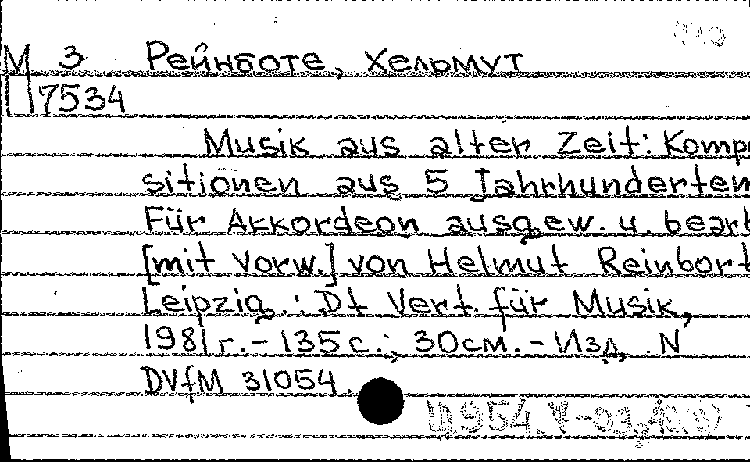 М 3 Рейнботе, Хельмут
П7534
Musik aus alter Zeit: Kompo
sitionen aus 5 Jahrhunderten
Für Akkordeon ausgew. u. bearb
[mit Vorw.] von Helmut Reinbot
Leipzig : Dt Verl. für Musik,
1981г. - 135 с.; 30см. - Изд. N
DVfM 31054.
Щ954.4-03